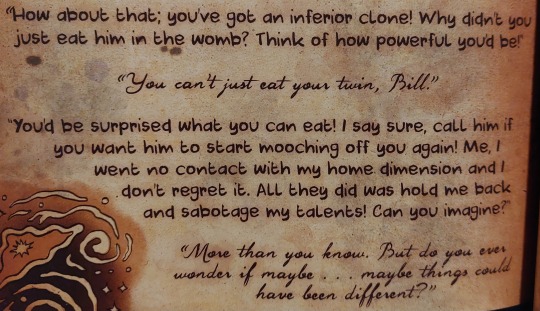 "How about that; you've got an inferior clone! Why didn't you
just eat him in the womb? Think of how powerful you'd be!"
"You can't just eat your twin, Bill."
"You'd be surprised what you can eat! I say sure, call him if
you want him to start mooching off you again! Me, I
went no contact with my home dimension and I
don't regret it. All they did was hold me back
and sabotage my talents! Can you imagine?"
"More than you know. But do you ever
wonder if maybe . . . maybe things could
have been different?"